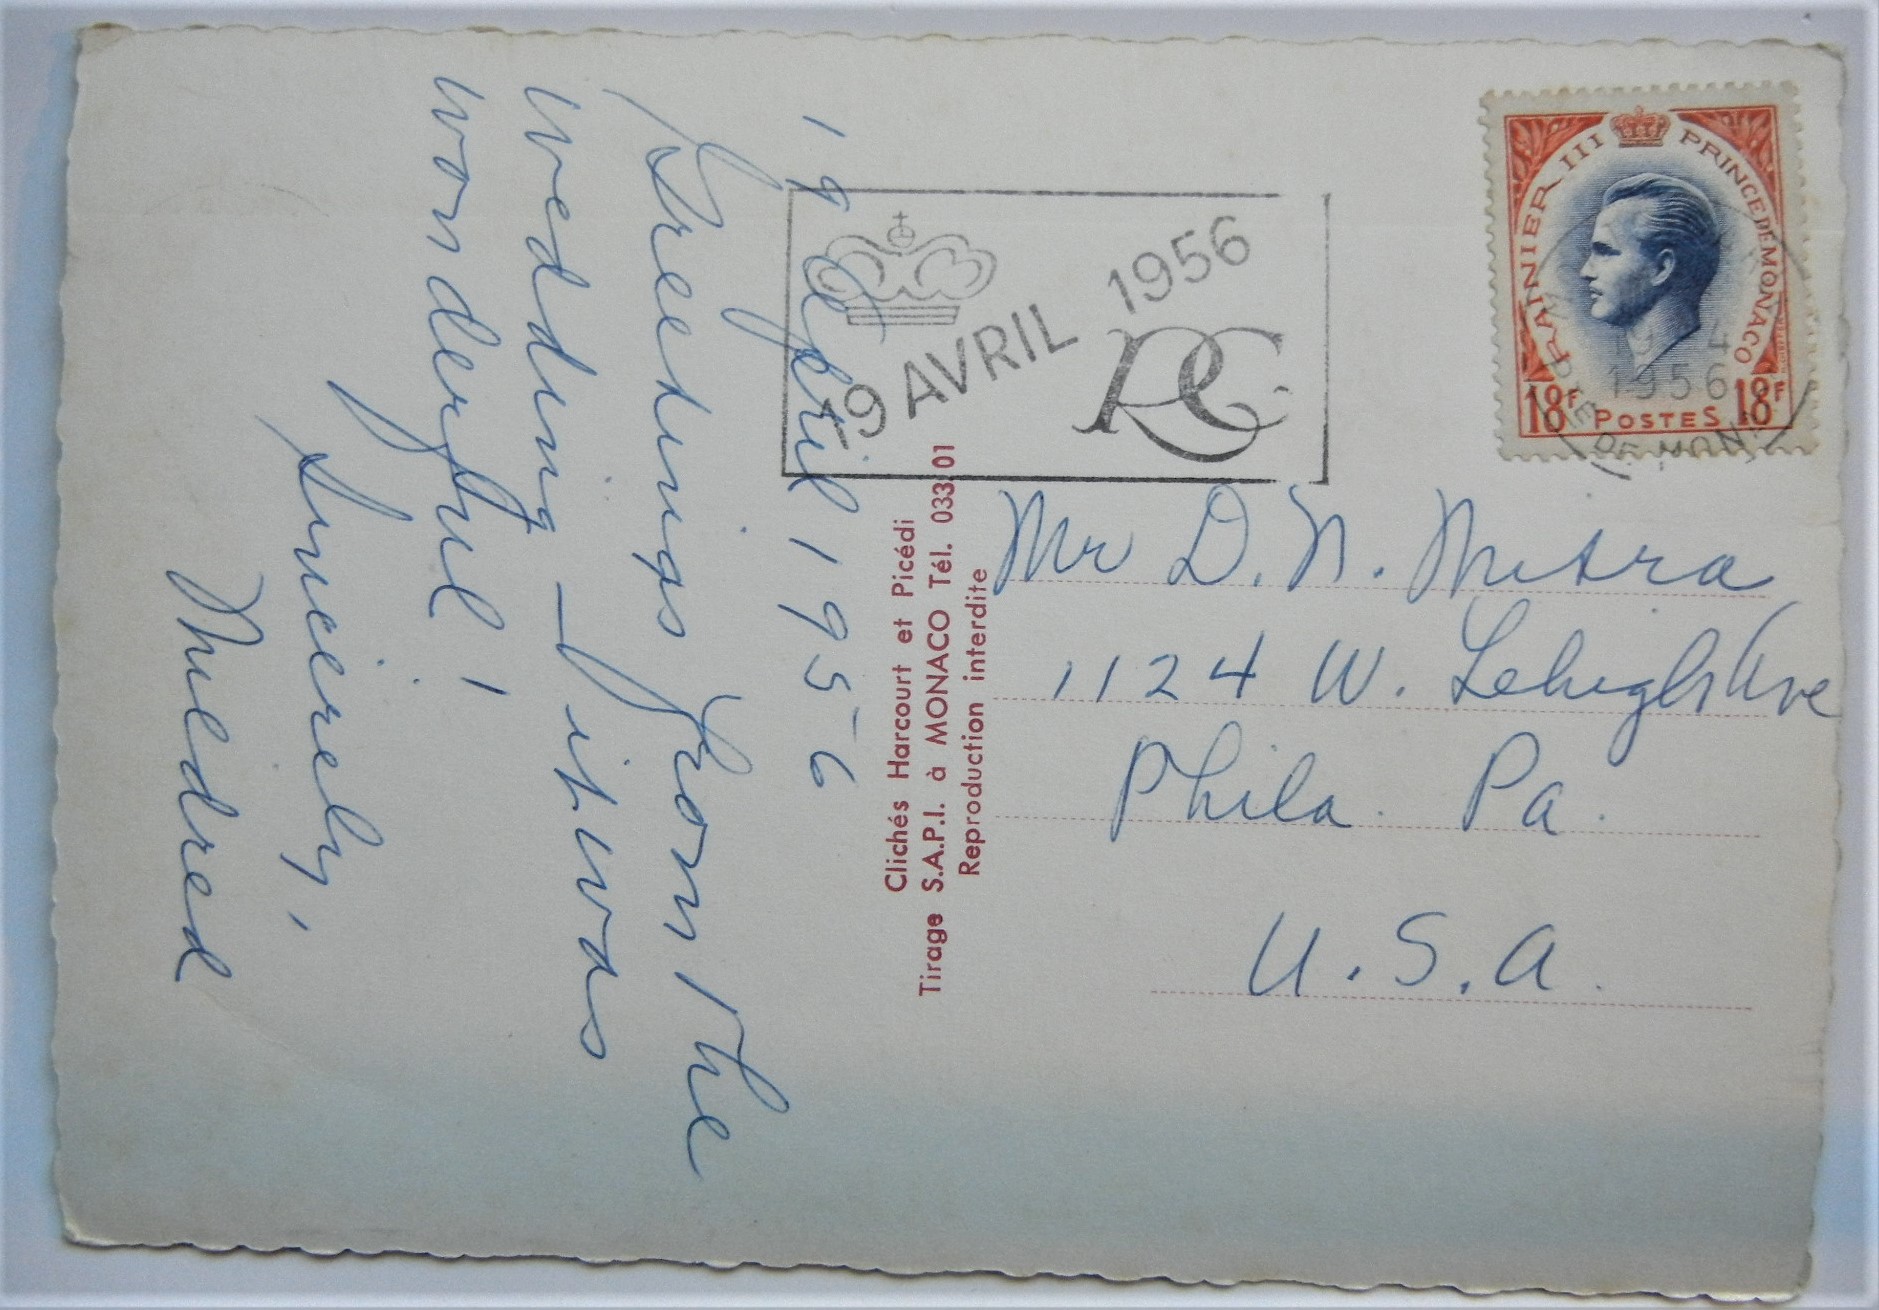 19 April 1956
Greetings from the
wedding – it was
wonderful!
Sincerely,
Mildred
19 AVRIL 1956
RG
RAINIER III PRINCE DE MONACO
18F POSTES 18F
19 4
1956
DE MON
Clichés Harcourt et Picédi
Tirage S.A.P.I. à MONACO Tél. 033 01
Reproduction interdite
Mr D. N. Mitra
1124 W. Lehigh Ave
Phila. Pa.
U.S.A.